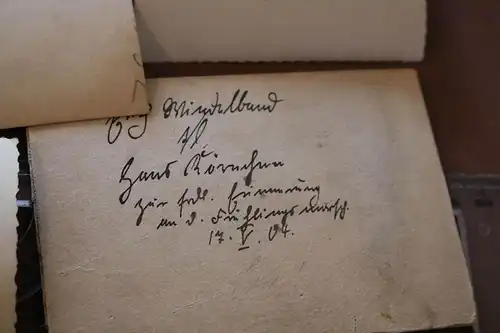 Windelband
s/l
Hans Körnchen
zur frdl. Erinnerung
an d. Frühlingsmarsch.
17. V. 04.